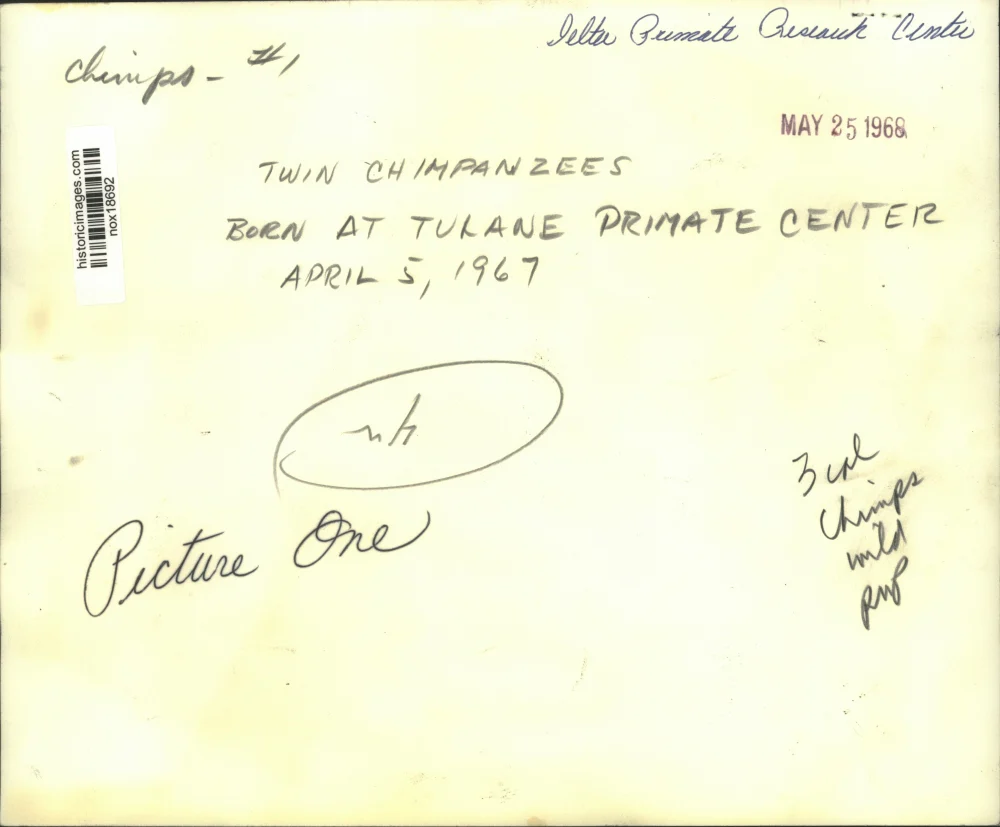 Delta Primate Research Center
Chimps - #1
MAY 25 1968
historicimages.com
nox18692
TWIN CHIMPANZEES
BORN AT TULANE PRIMATE CENTER
APRIL 5, 1967
Picture One
3 col
Chimps